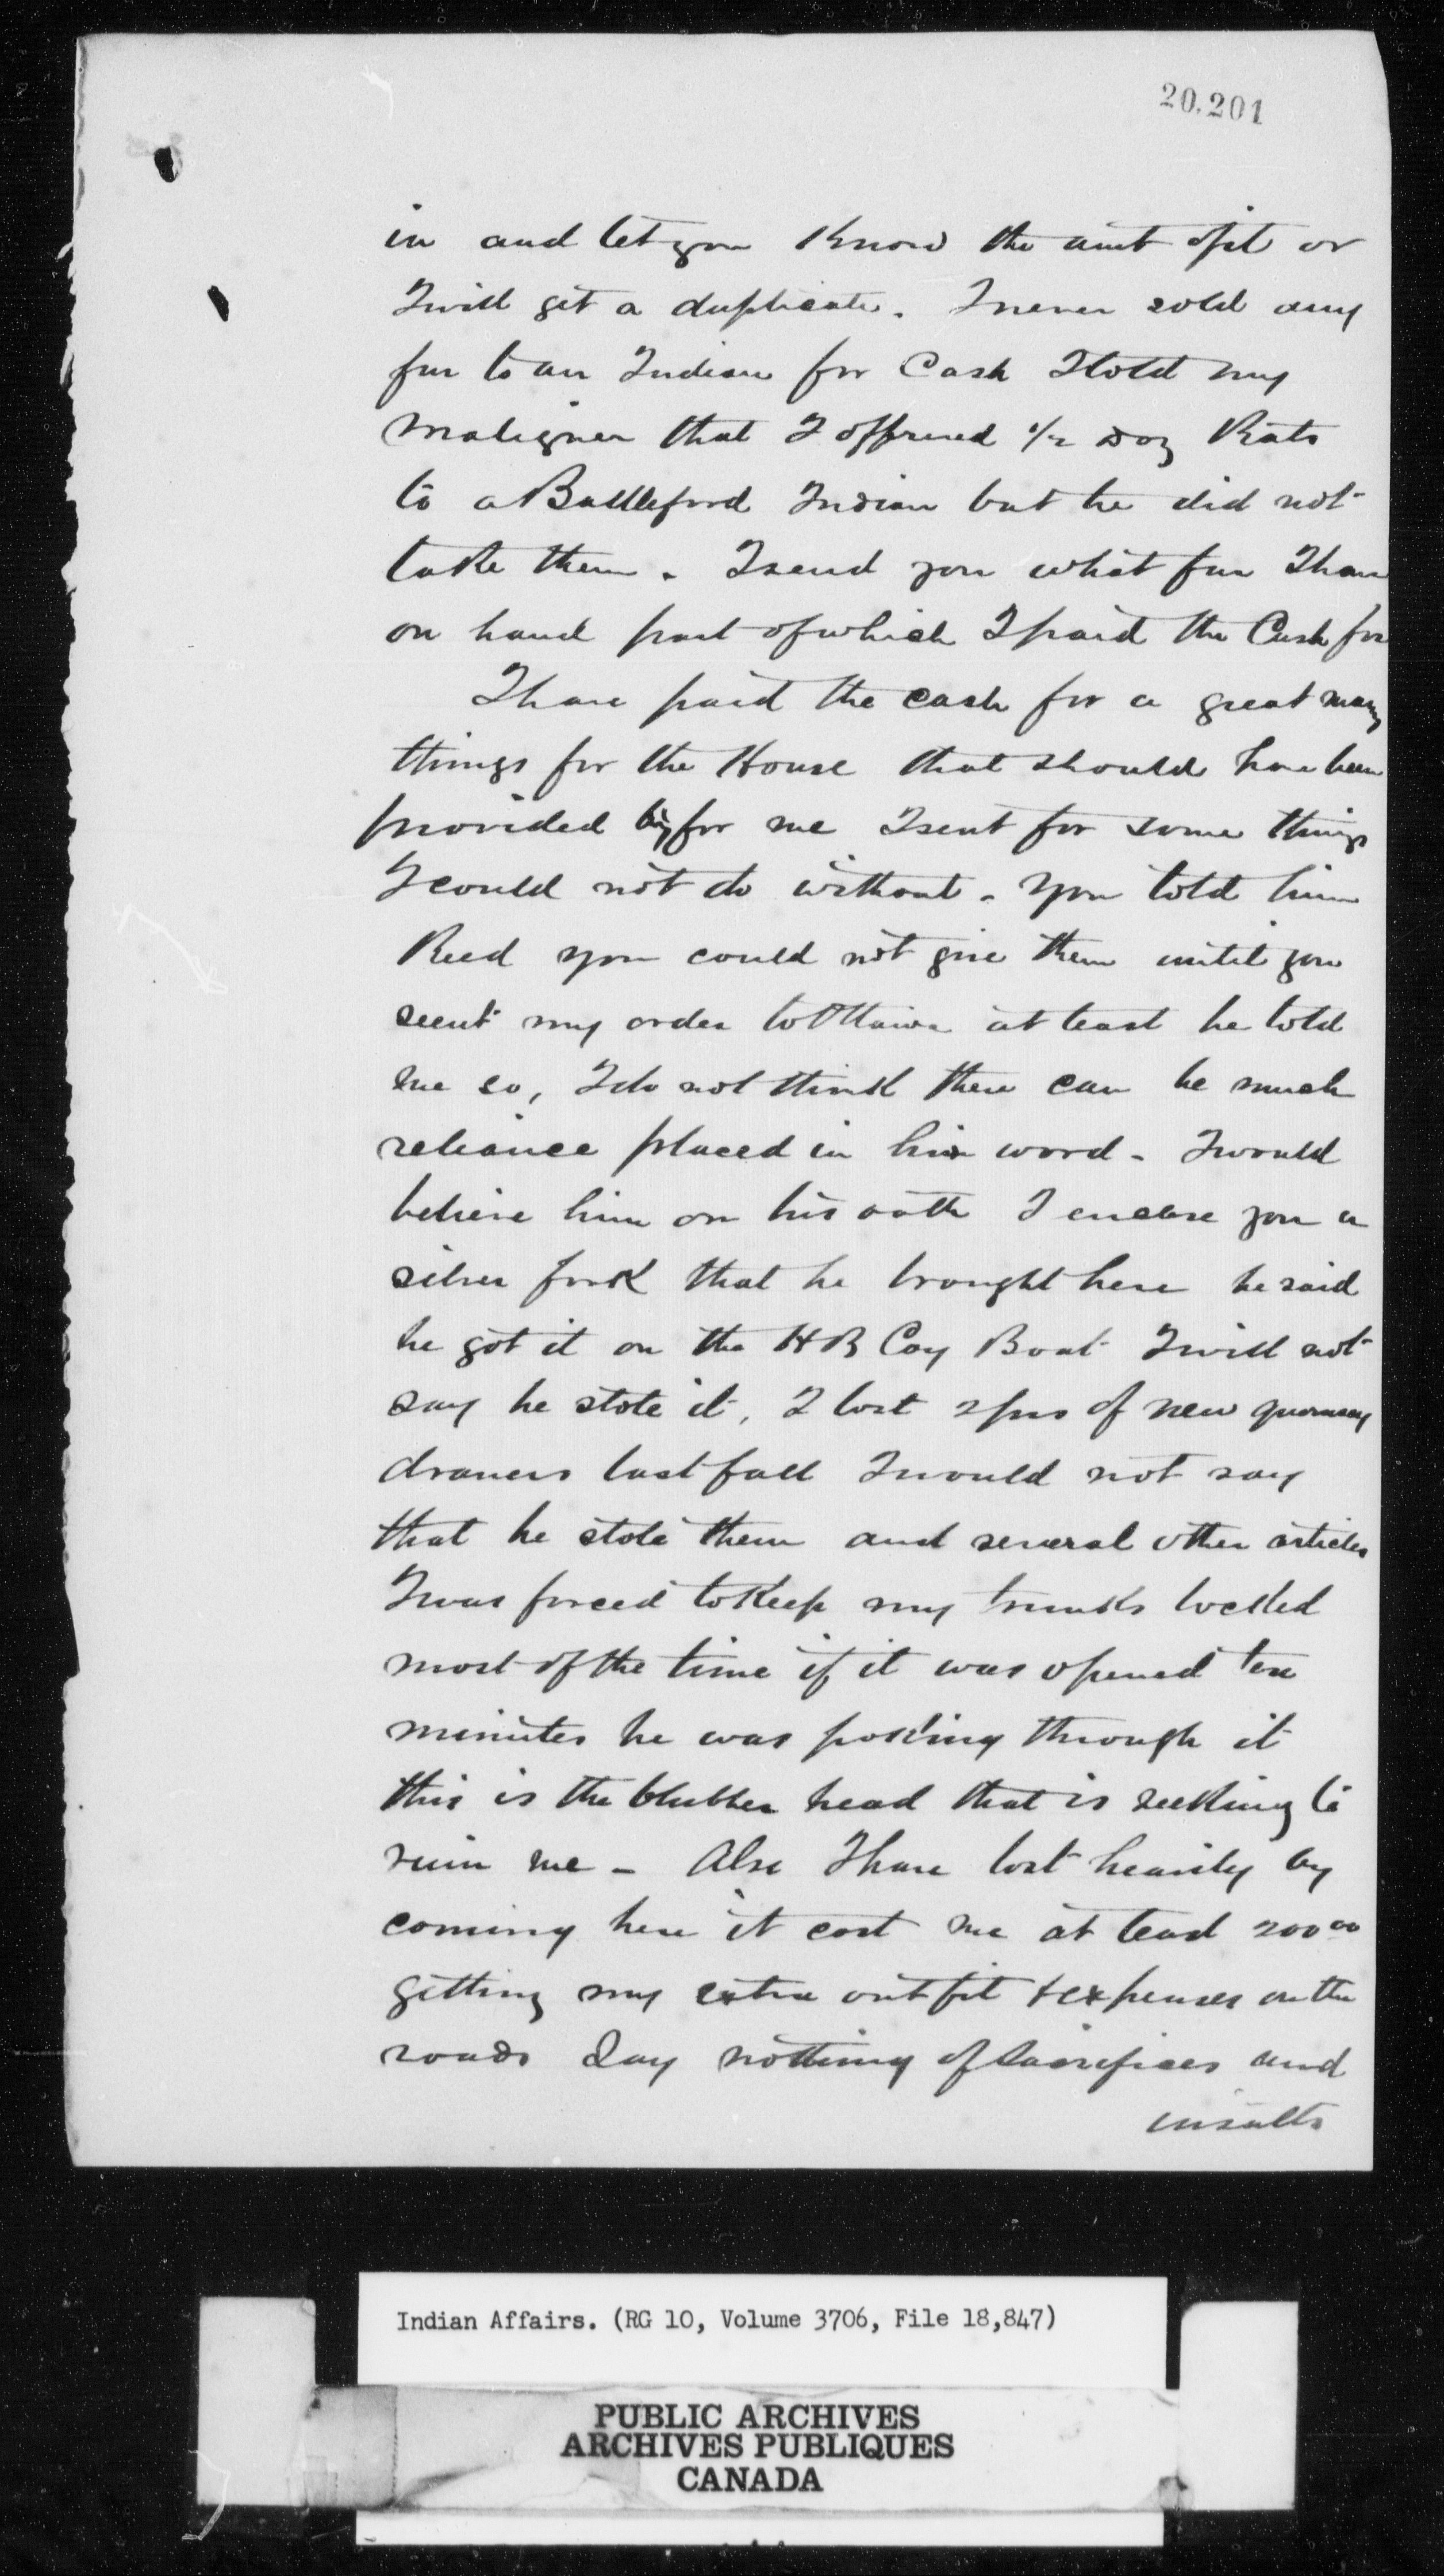 20,201
in and let you Know the amt of it or
I will get a duplicate. I never sold any
fur to an Indian for Cash I told my
maligner that I offrered 1/2 Doz Rats
to a Battleford Indian but he did not
take them. I send you what fur I have
on hand part of which I paid the Cash for
I have paid the cash for a great many
things for the House that should have been
provided by for me I sent for some things
I could not do without. You told him
Reed you could not give them until you
sent my order to Ottawa at least he told
me so, I do not think there can be much
reliance placed in his word. I would
believe him on his oath I enclose you a
silver fork that he brought here he said
he got it on the HB Coy Boat I will not
say he stole it, I lost 2 prs of new guernsey
drawers last fall I would not say
that he stole them and several other articles
I was forced to Keep my trunks locked
most of the time if it was opened ten
minutes he was poking through it
this is the blubber head that is seeking to
ruin me - Also I have lost heavily by
coming here it cost me at least 200 00
getting my extra outfit & expenses on the
roads Say nothing of Sacrifices and
insults
Indian Affairs. (RG 10, Volume 3706, File 18,847)
PUBLIC ARCHIVES
ARCHIVES PUBLIQUES
CANADA